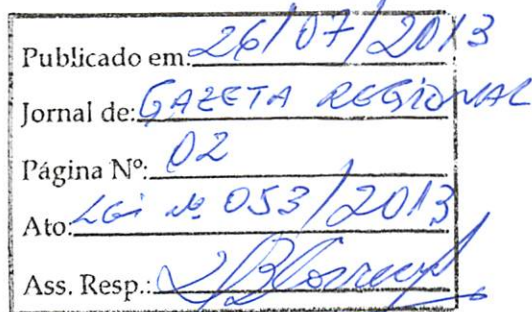 Publicado em: 26/07/2013
Jornal de: GAZETA REGIONAL
Página Nº: 02
Ato: Lei nº 053/2013
Ass. Resp.: